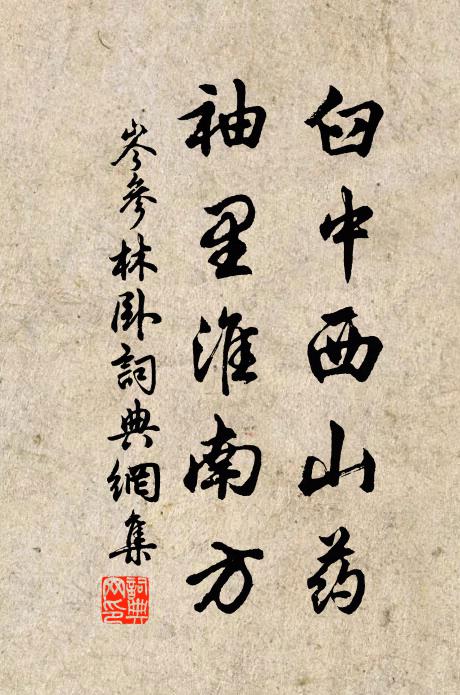 臼中西山药
袖里淮南方
岑參林卧詞典網集
詞典网印